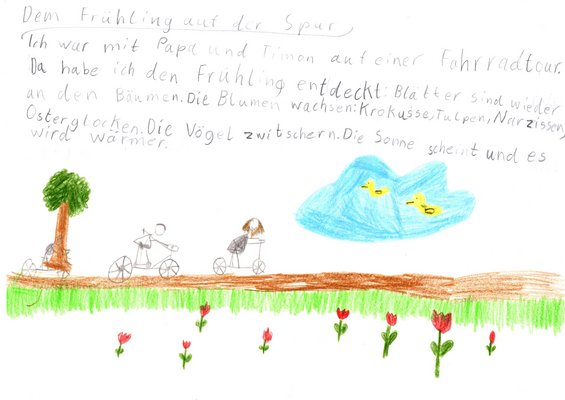 Dem Frühling auf der Spur
Ich war mit Papa und Timon auf einer Fahrradtour.
Da habe ich den Frühling entdeckt: Blätter sind wieder
an den Bäumen. Die Blumen wachsen: Krokusse, Tulpen, Narzissen,
Osterglocken. Die Vögel zwitschern. Die Sonne scheint und es
wird wärmer.